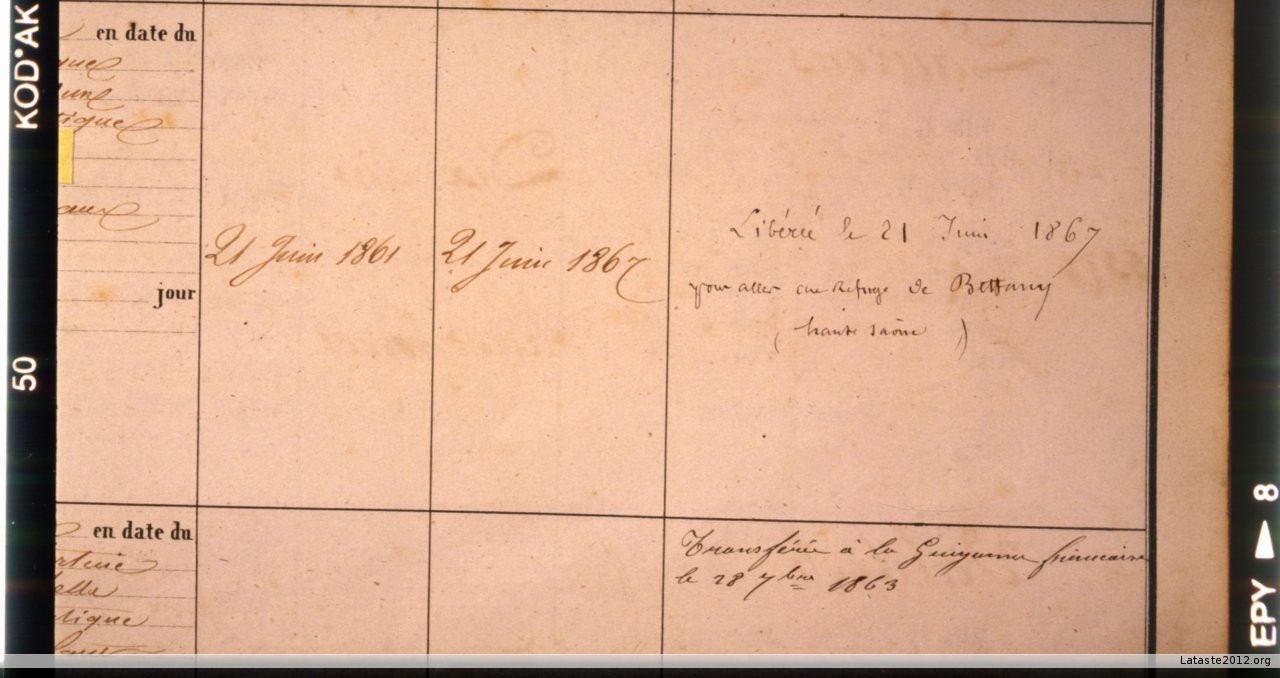 KODAK
50
en date du
tique
aux
jour
21 Juin 1861
21 Juin 1867
Libérée le 21 Juin 1867
pour aller au Refuge de Bethany
(haute saône)
en date du
ella
tique
Transférée à la Guyanne francaise
le 28 7bre 1863
EPY ▶ 8
Lataste2012.org